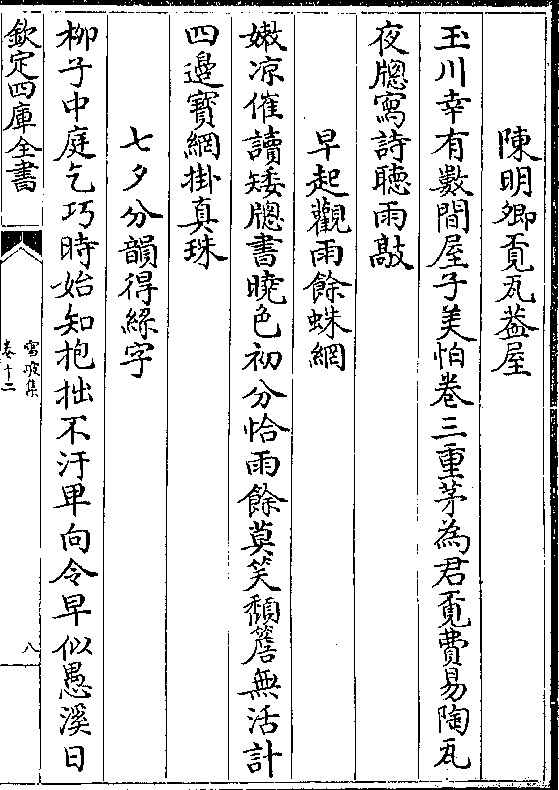 陳明卿覔瓦葢屋
玉川幸有數間屋子美怕卷三重茅為君覔費易陶瓦
夜牕寫詩聽雨敲
早起觀雨餘蛛網
嫩凉催讀矮牕書曉色初分恰雨餘莫笑頽簷無活計
四邊寳網掛真珠
七夕分韻得綵字
柳子中庭乞巧時始知抱拙不汙卑向令早似愚溪日
欽定四庫全書
卷十二
八